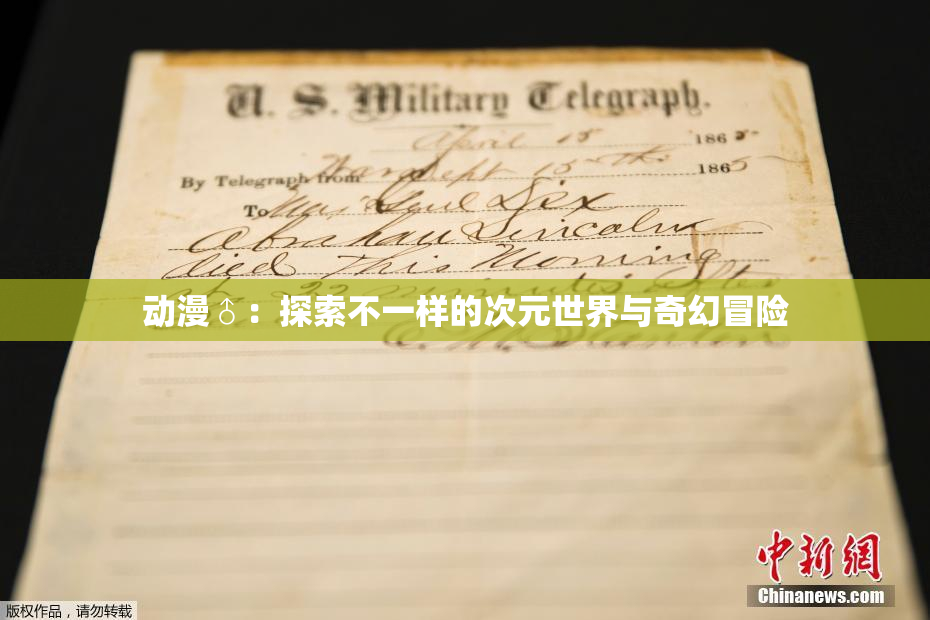 U. S. Military Telegraph.
April 15 1865
By Telegraph from War Dept 15th 1865
To Maj Genl Dix
Abraham Lincoln
died This Morning
at 22 minutes after
动漫♂：探索不一样的次元世界与奇幻冒险
E. M. Stanton
中新網
Chinanews.com
版权作品，请勿转载